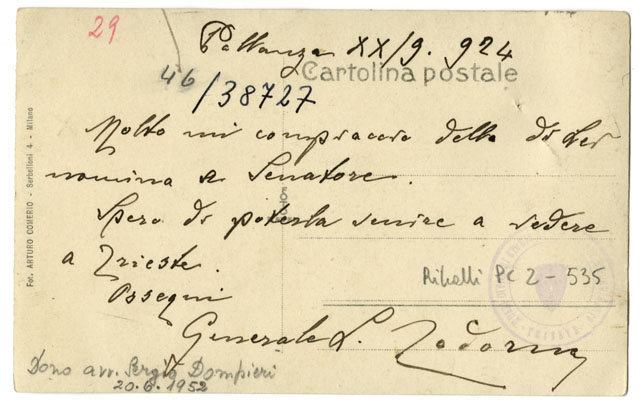 29
Pallanza XX/9. 924
46
Cartolina postale
/38727
Molto mi compiaccio della di Lei
nomina a Senatore.
Spero di poterla venire a vedere
a Trieste.
Ossequi
Generale L. Cadorna
Ribalti Pc 2-535
Dono avv. Sergio Dompieri
20.6.1952
Fot. ARTURO COMERIO - Serbelloni 4 - Milano